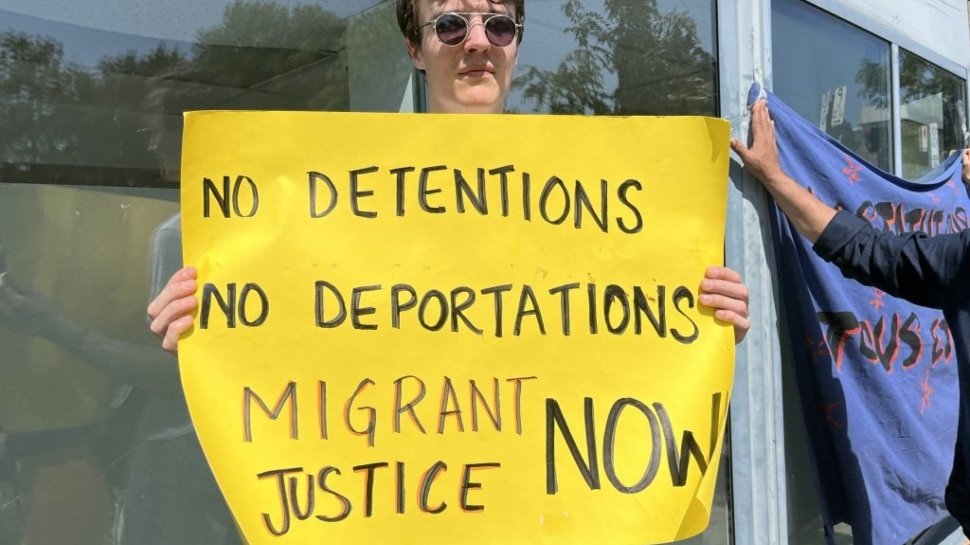 NO DETENTIONS
NO DEPORTATIONS
MIGRANT
JUSTICE NOW
TOUS ET